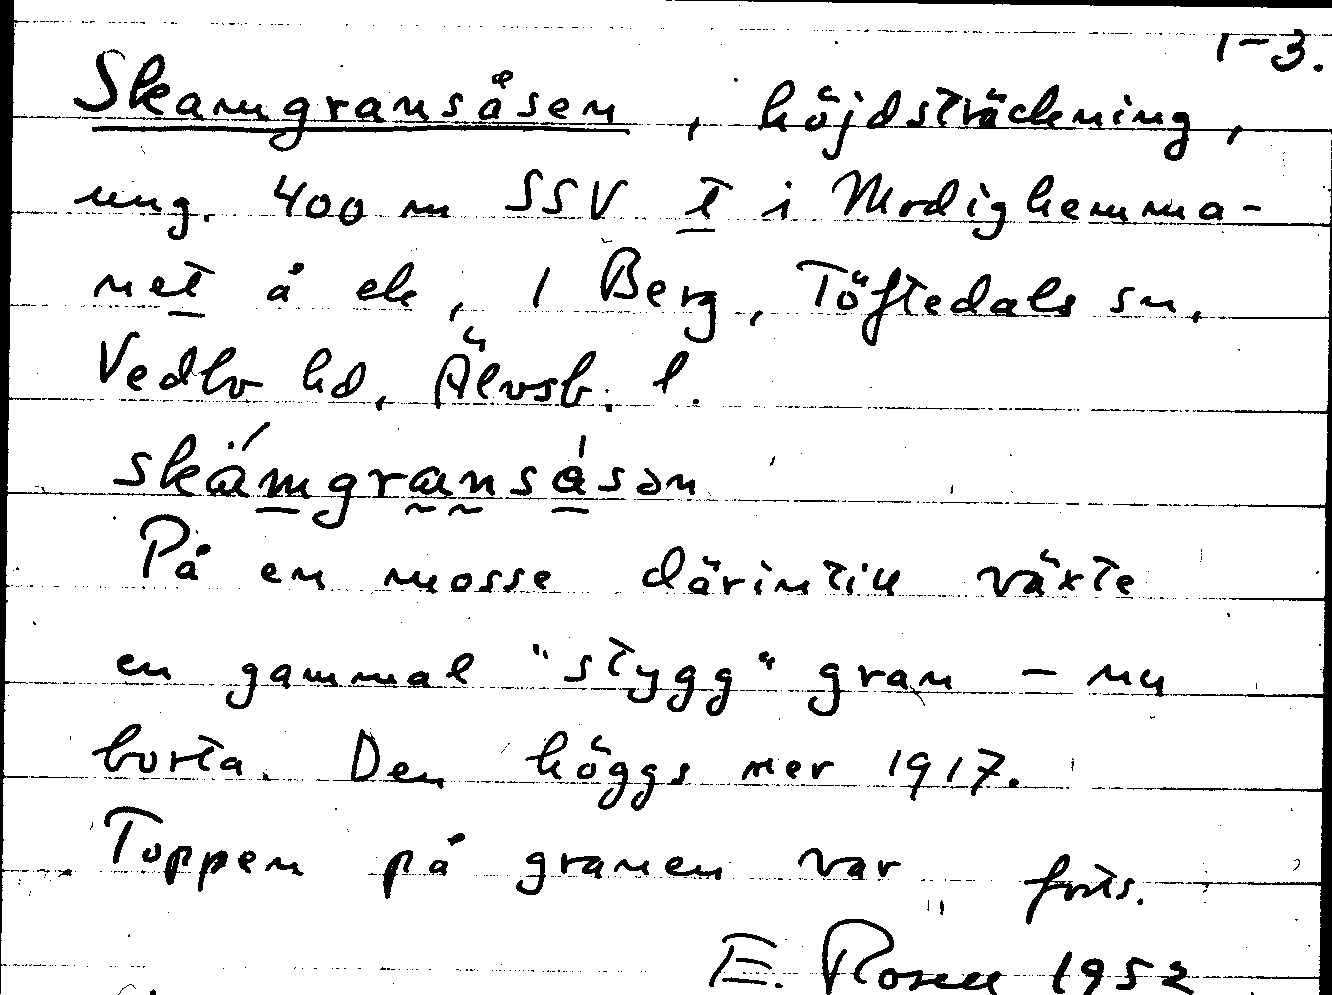 1-3.
Skamgransåsen, höjdsträckning,
ung. 400 m SSV t i Modighemma-
net å ek, 1 Berg, Töftedals sn,
Vedbo hd, Älvsb. l.
skämgransåsən
På en mosse därintill växte
en gammal "stygg" gran - nu
borta. Den höggs ner 1917.
Toppen på granen var forts.
E. Rosell 1952